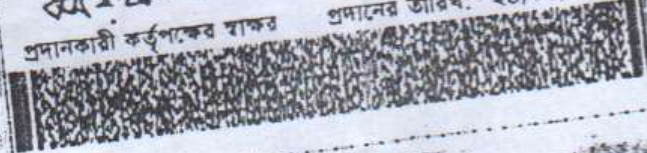 প্রদানকারী কর্তৃপক্ষের স্বাক্ষর প্রদানের তারিখ: